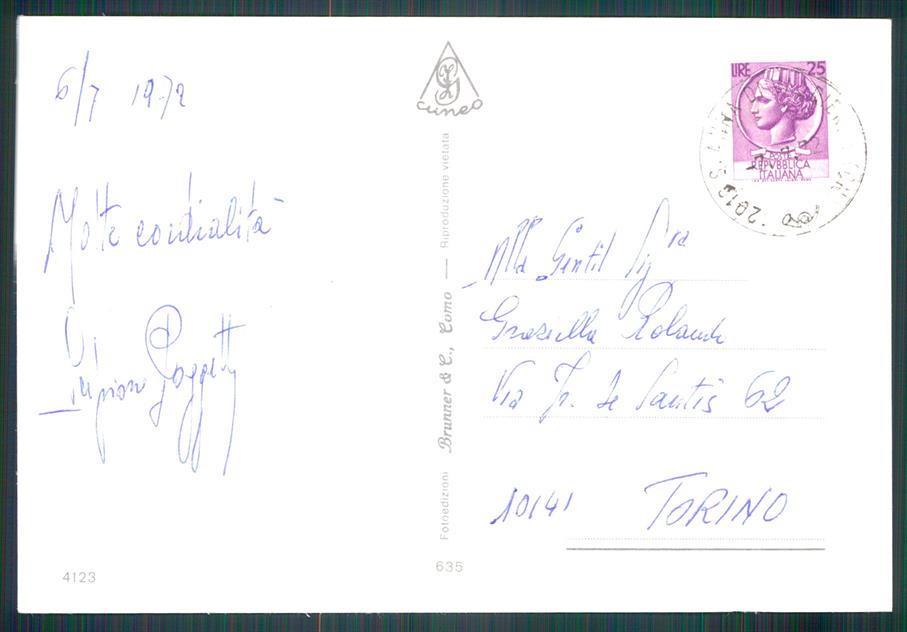 6/7 1972
Molte cordialità
Poggetti
4123
cuneo
Fotoedizioni Brunner & C., Como — Riproduzione vietata
635
LIRE 25
POSTE
REPVBBLICA
ITALIANA
Alla Gentil Sig.ra
Graziella Rolando
Via Fr. De Santis 62
10141 TORINO